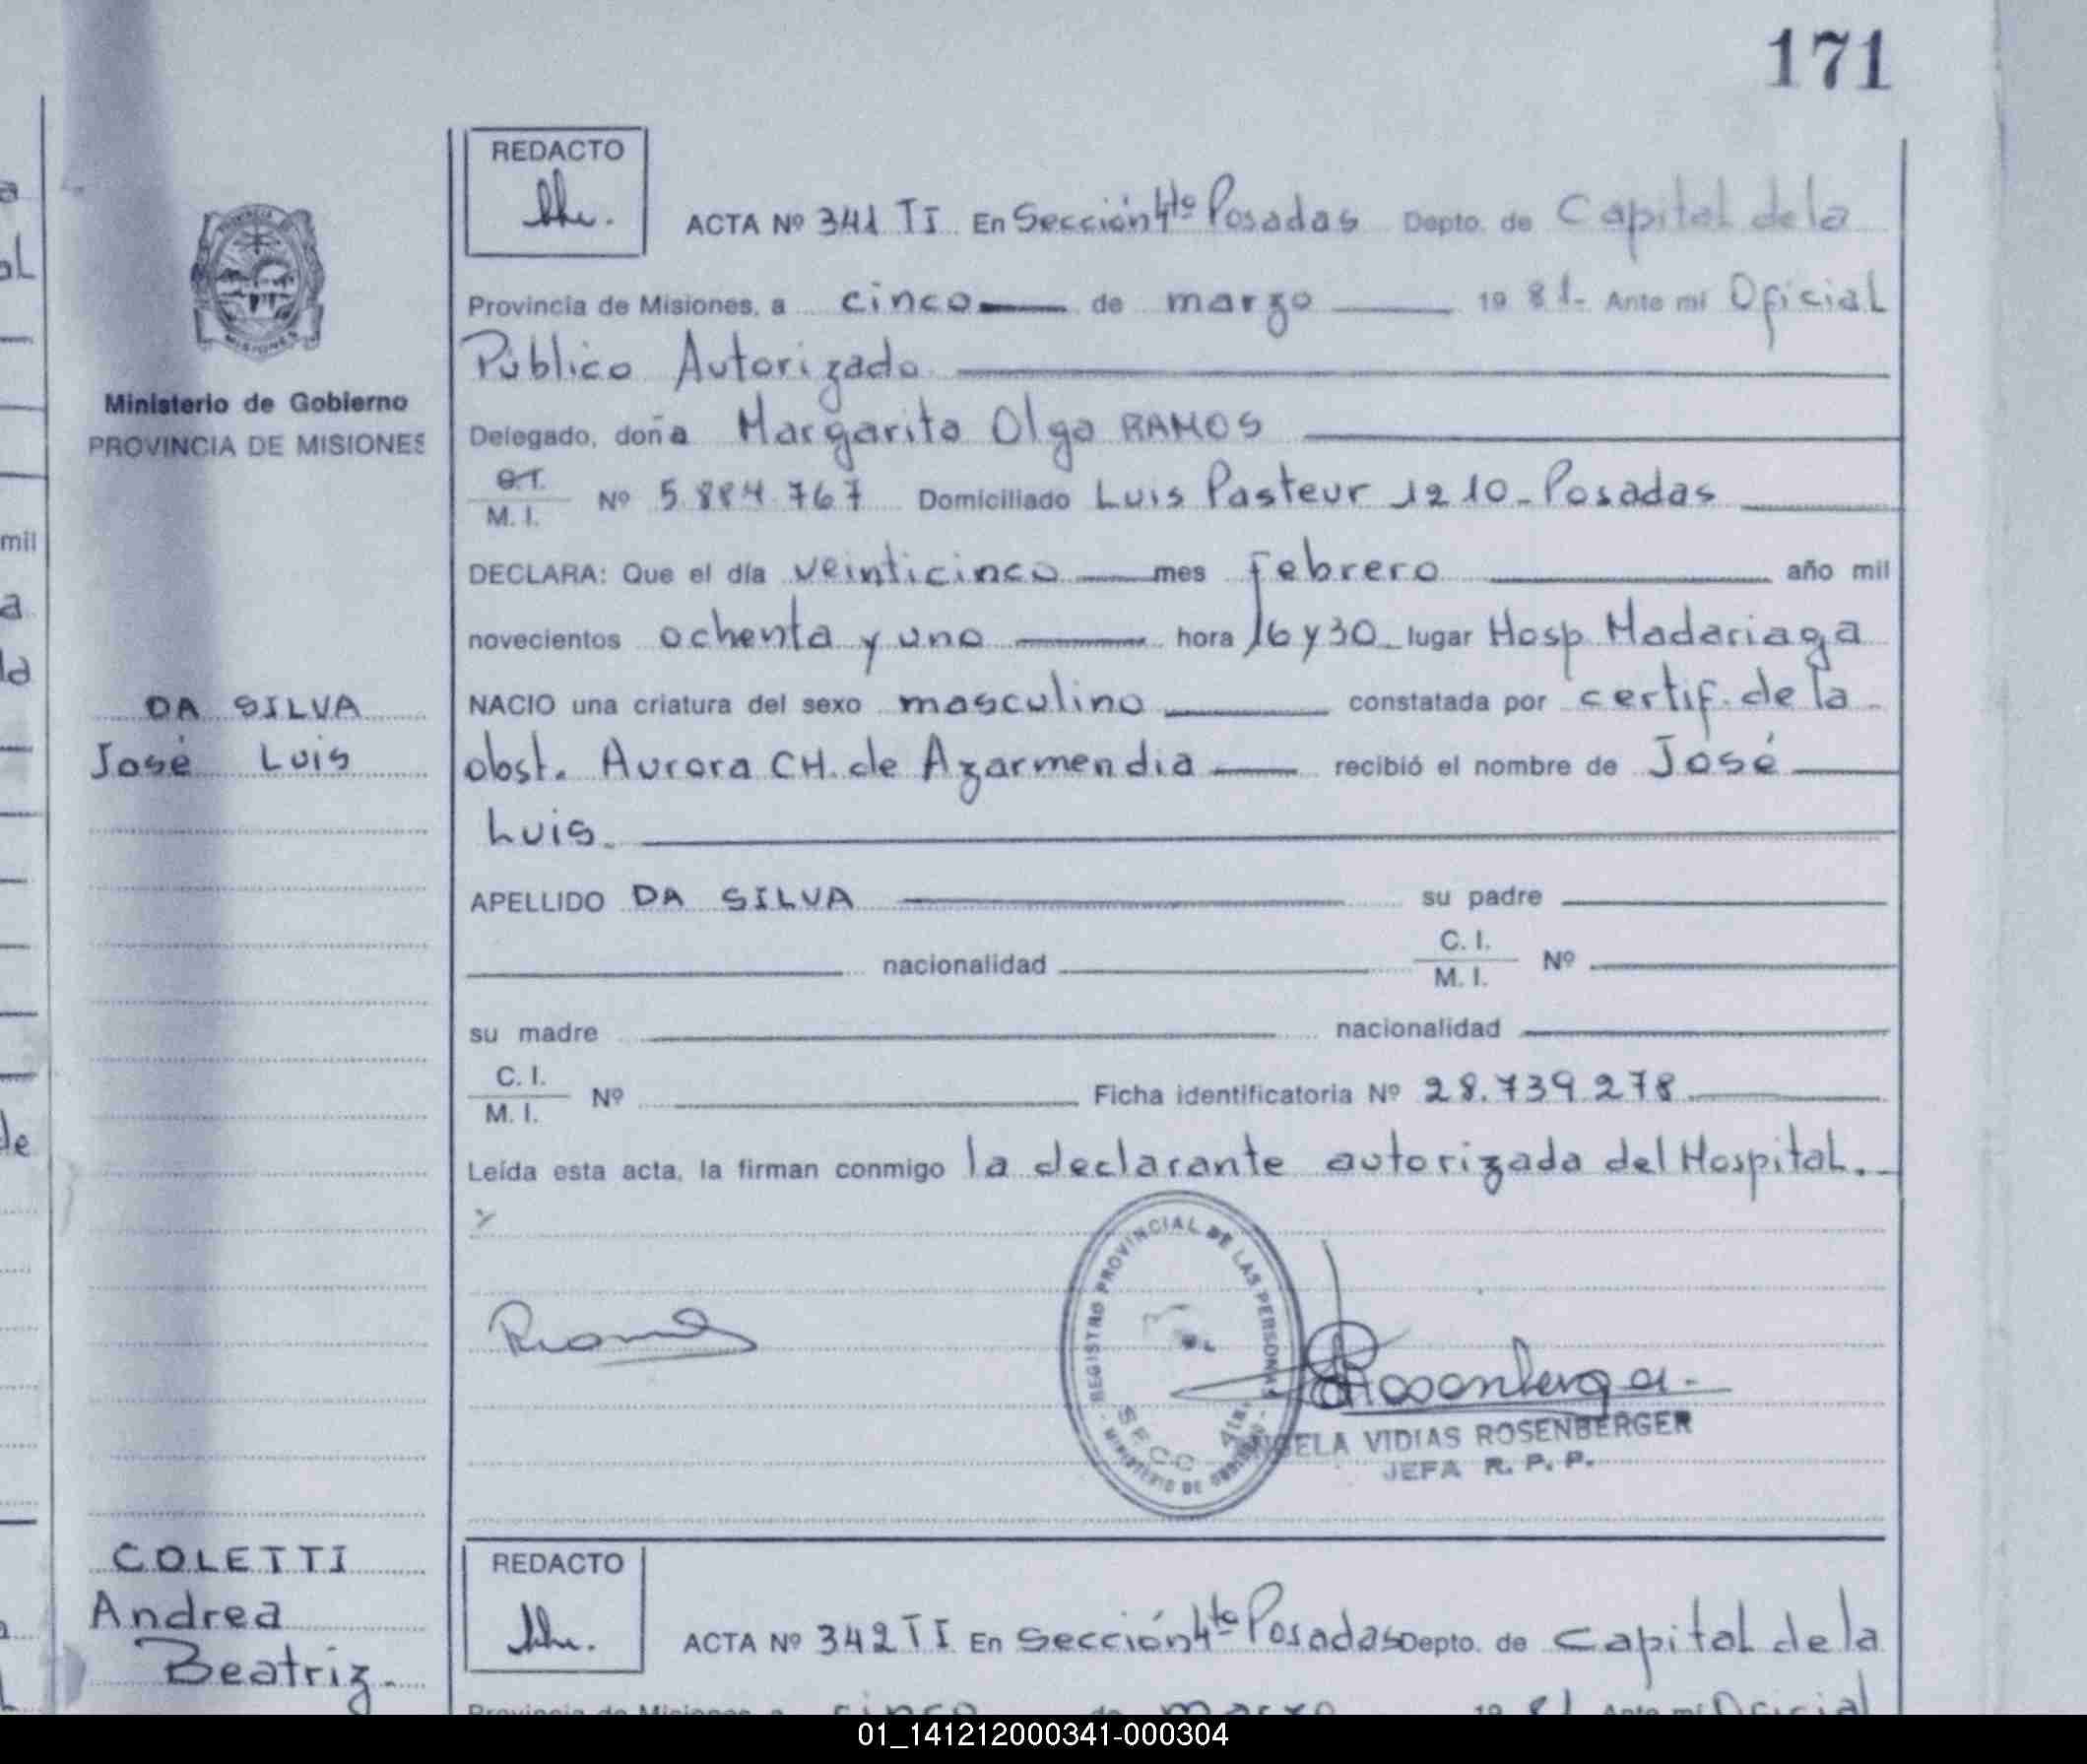 171
REDACTO
ACTA Nº 341 TI En Sección 4tª Posadas Depto. de Capital de la
Provincia de Misiones, a cinco de marzo 19 81- Ante mí Oficial
Público Autorizado
Delegado, doña Margarita Olga RAMOS
C.I.
M. I. Nº 5.884.767 Domiciliado Luis Pasteur 1210- Posadas
DECLARA: Que el día veinticinco mes Febrero año mil
novecientos ochenta y uno hora 16 y 30 lugar Hosp Madariaga
NACIO una criatura del sexo masculino constatada por certif. de la
obst. Aurora CH. de Azarmendia recibió el nombre de José
Luis.
APELLIDO DA SILVA su padre
nacionalidad C. I.
M. I. Nº
su madre nacionalidad
C. I.
M. I. Nº Ficha identificatoria Nº 28.739.278
Leída esta acta, la firman conmigo la declarante autorizada del Hospital.
MISIONES
Ministerio de Gobierno
PROVINCIA DE MISIONES
DA SILVA
José Luis
REGISTRO PROVINCIAL DE LAS PERSONAS
SECC 4ta.
MINISTERIO DE GOBIERNO
Rosenberger
VIDIAS ROSENBERGER
JEFA R. P. P.
COLETTI
Andrea
Beatriz.
REDACTO
ACTA Nº 342 TI En Sección 4tª Posadas Depto. de Capital de la
Provincia de Misiones, a cinco de marzo 19 81 Ante mí Oficial
01_141212000341-000304